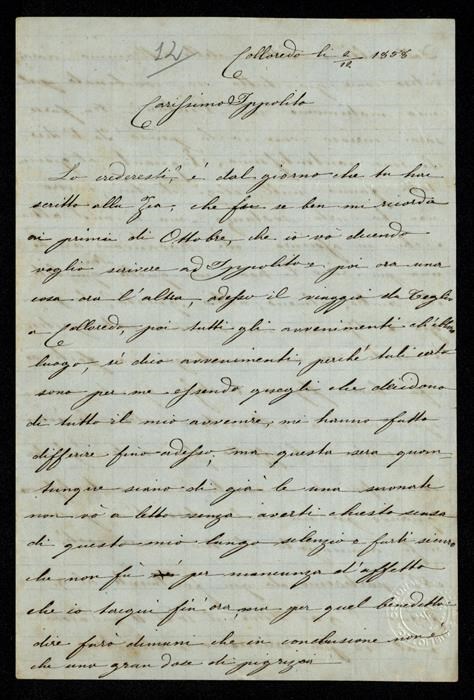 12
Colloredo li 2/12 1858
Carissimo Ippolito
Lo crederesti? è dal giorno che tu hai
scritto alla Zia, che fu se ben mi ricordo
ai primi di Ottobre, che io vò dicendo
voglio scrivere ad Ippolito e poi ora una
cosa ora l'altra, adesso il viaggio da Teglio
a Colloredo, poi tutti gli avvenimenti ch'ebbero
luogo, sì dico avvenimenti, perchè tali certo
sono per me essendo quegli che decidono
di tutto il mio avvenire, mi hanno fatto
differire fino adesso; ma questa sera quan
tunque siano di già le una suonate
non vò a letto senza averti chiesto scusa
di questo mio lungo silenzio e farti sicuro
che non fù per mancanza d'affetto
che io tacqui fin'ora, ma per quel benedetto
dire farò dimani che in conclusione non è
che una gran dose di pigrizia